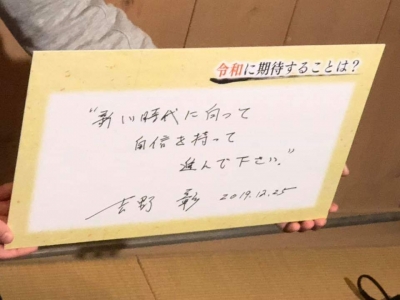 令和に期待することは？
“新しい時代に向って
自信を持って
進んで下さい.”
吉野 彰 2019.12.25